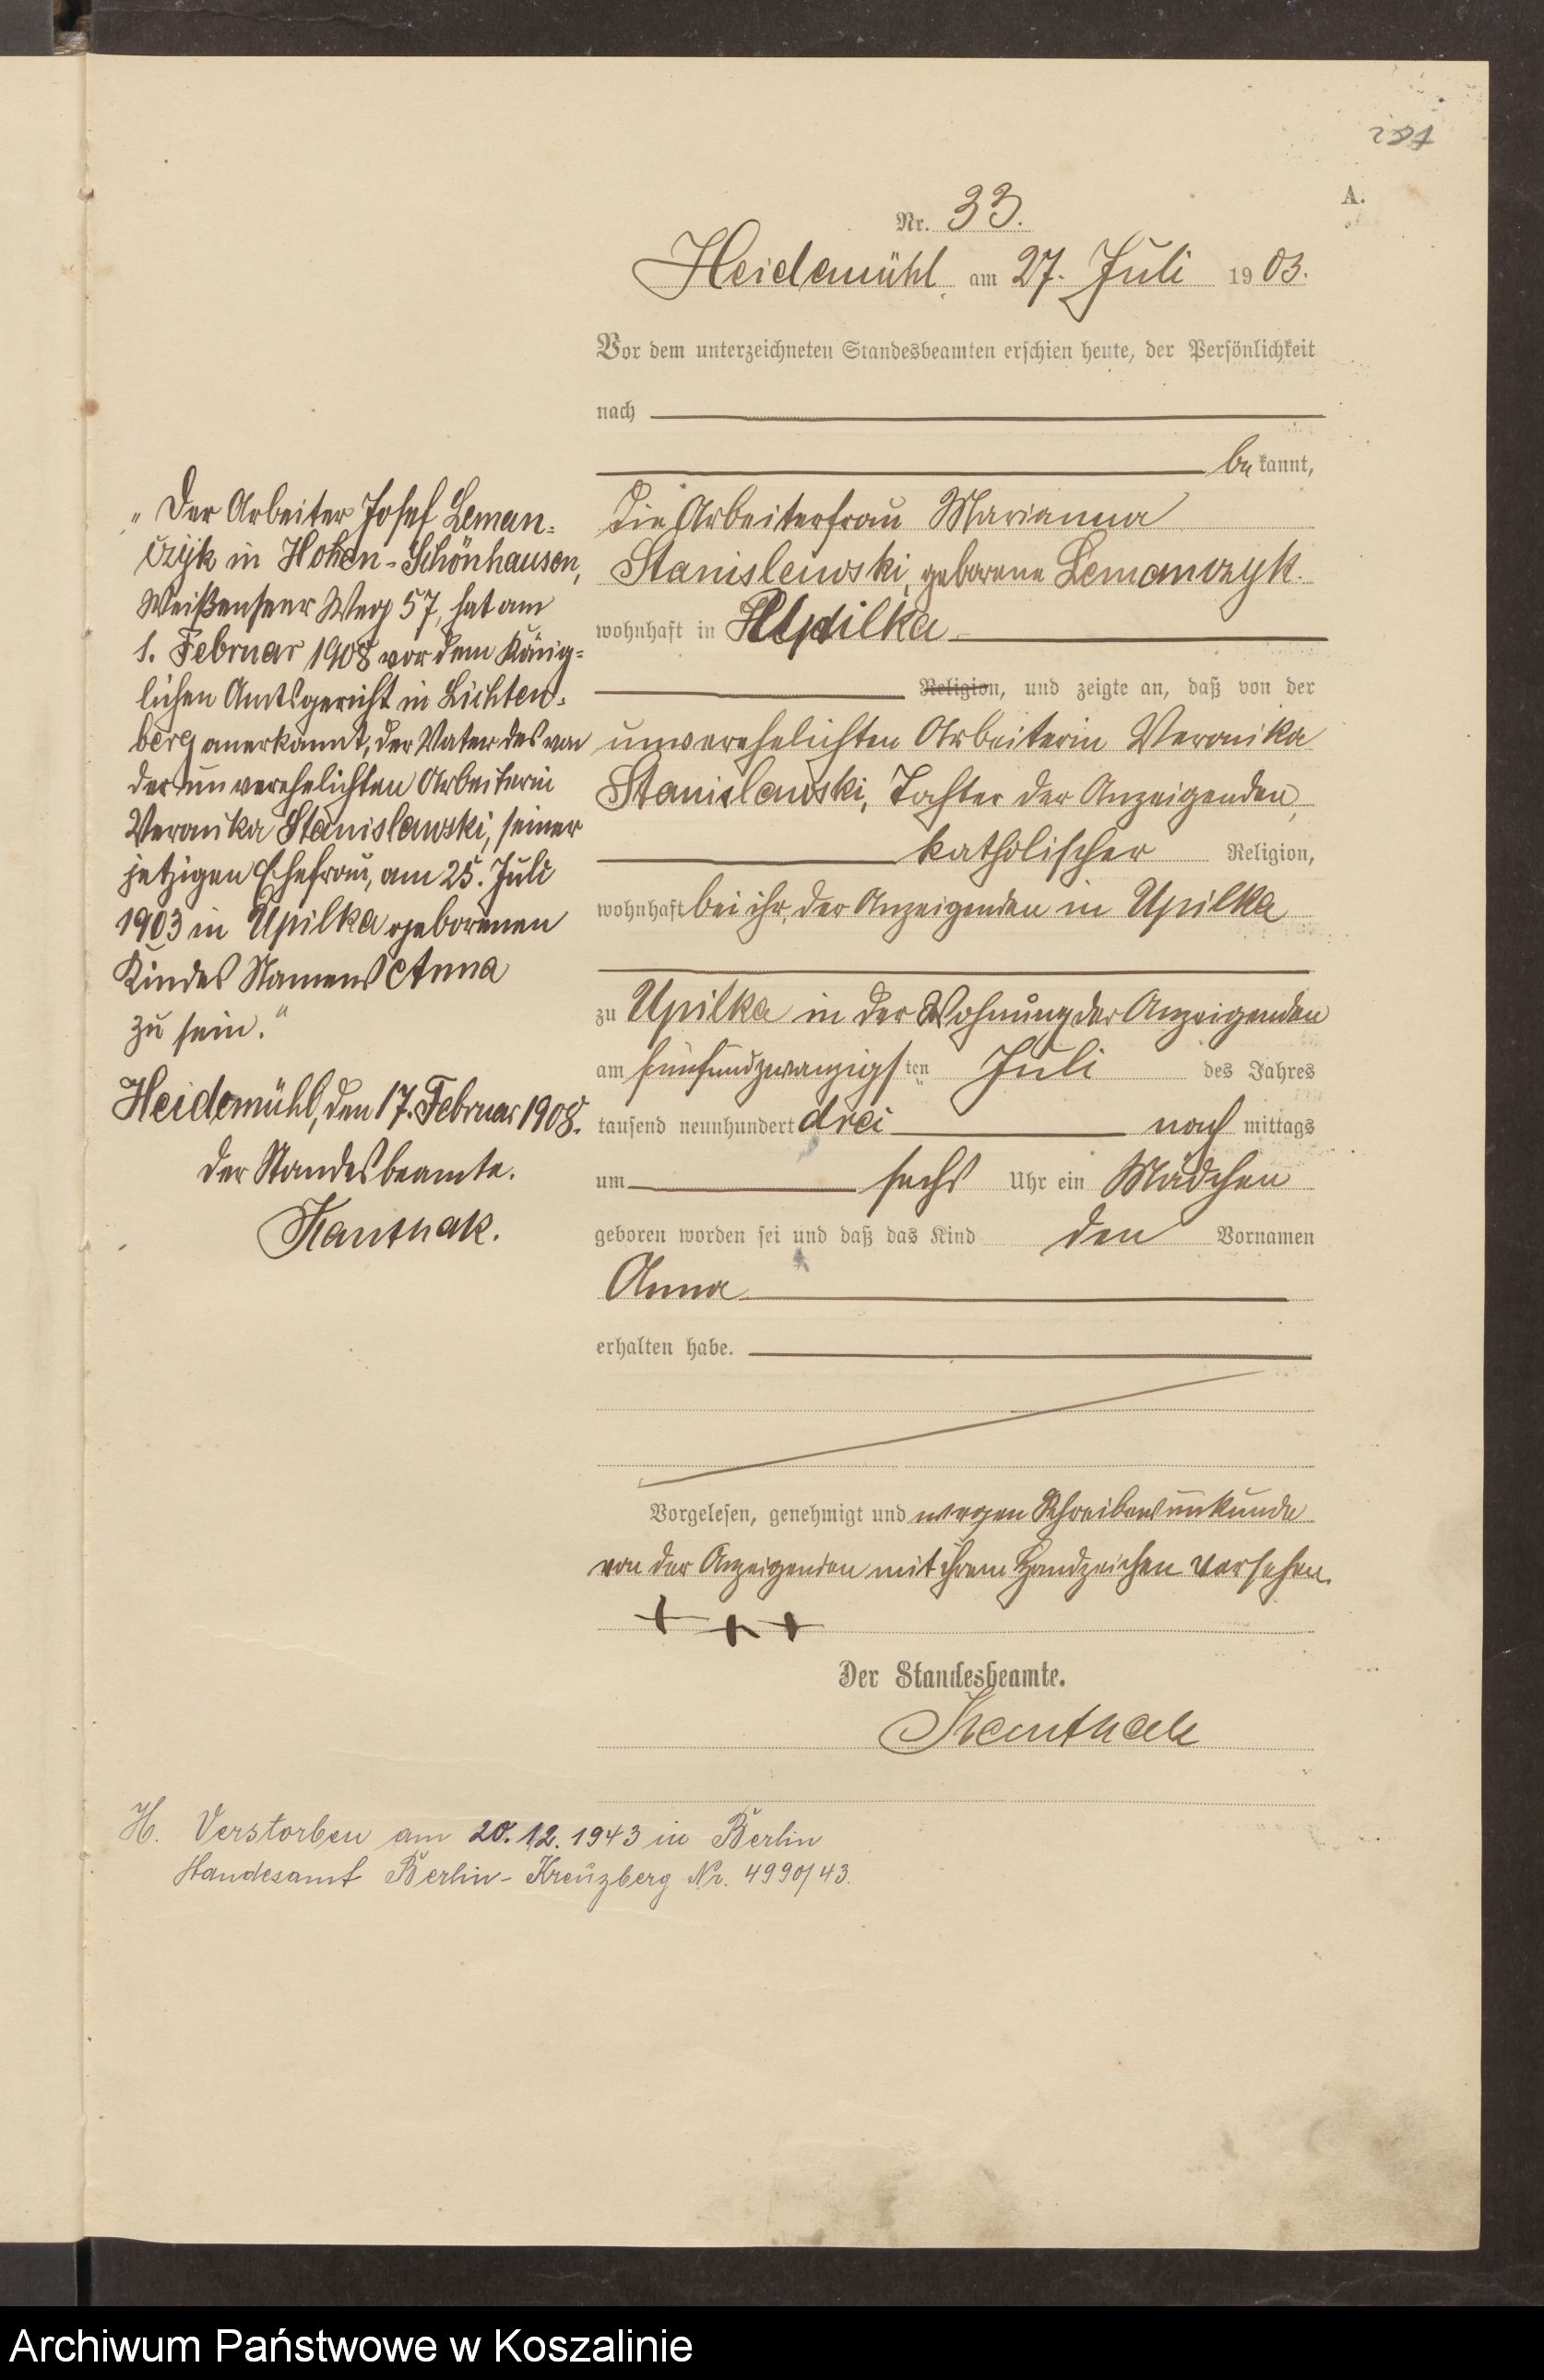 A.
Nr. 33.
Heidemühl am 27. Juli 1903.
Vor dem unterzeichneten Standesbeamten erschien heute, der Persönlichkeit
nach
be kannt,
die Arbeiterfrau Marianna
Stanislewski, geborene Lemanczyk.
wohnhaft in Upilka
Religion, und zeigte an, daß von der
unverehelichten Arbeiterin Veronika
Stanislawski, Tochter der Anzeigenden,
katholischer Religion,
wohnhaft bei ihr, der Anzeigenden in Upilka
zu Upilka in der Wohnung der Anzeigenden
am fünfundzwanzigsten Juli des Jahres
tausend neunhundert drei nach mittags
um sechs Uhr ein Mädchen
geboren worden sei und daß das Kind den Vornamen
Anna
erhalten habe.
Vorgelesen, genehmigt und wegen Schreibensunkunde
von der Anzeigenden mit ihrem Handzeichen versehen.
+ + +
Der Standesbeamte.
Kanthak
„Der Arbeiter Josef Leman-
czyk in Hohen-Schönhausen,
Weißenseer Weg 57, hat am
1. Februar 1908 vor dem König-
lichen Amtsgericht in Lichten-
berg anerkannt, der Vater des von
der unverehelichten Arbeiterin
Veronika Stanislawski, seiner
jetzigen Ehefrau, am 25. Juli
1903 in Upilka geborenen
Kindes Namens Anna
zu sein."
Heidemühl, den 17. Februar 1908.
Der Standesbeamte.
Kanthak.
H. Verstorben am 20.12.1943 in Berlin
Standesamt Berlin-Kreuzberg Nr. 4990/43.
Archiwum Państwowe w Koszalinie